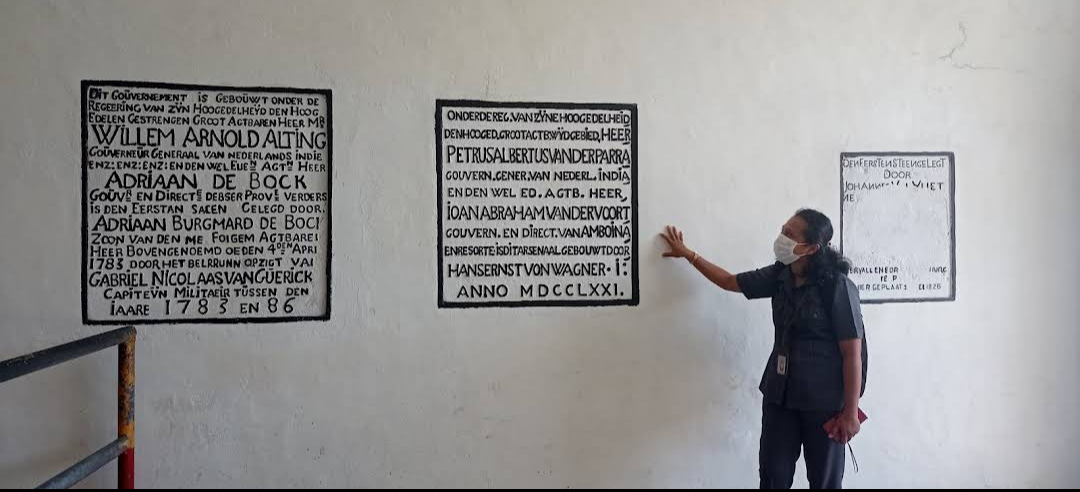 DIT GOÜVERNEMENT IS GEBOÜWT ONDER DE
REGEERING VAN ZŸN HOOGEDELHEŸD DEN HOOG
EDELEN GESTRENGEN GROOT AGTBAREN HEER MR
WILLEM ARNOLD ALTING
GOÜVERNEÜR GENERAAL VAN NEDERLANDS INDIE
ENZ: ENZ: ENZ: EN DEN WEL EUEN AGTN HEER
ADRIAAN DE BOCK
GOÜVR EN DIRECTE DEBSER PROVE VERDERS
IS DEN EERSTAN SAEN GELEGD DOOR.
ADRIAAN BURGMARD DE BOCI
ZOON VAN DEN ME. FOIGEM AGTBAREI
HEER BOVENGENOEMD OEDEN 4DEN APRI
1783 DOOR HET BELRRUNN OPZIGT VAI
GABRIEL NICOLAAS VAN GUERICK
CAPITEŸN MILITAEIR TÜSSEN DEN
IAARE 1785 EN 86
ONDERDEREG. VAN ZŸNE HOOGEDELHEID
DENHOOGED. GROOTACTB. WŸDGEBIED, HEER
PETRUSALBERTUSVANDERPARRA
GOUVERN. GENER. VAN NEDERL. INDIA
EN DEN WEL ED. AGTB. HEER,
IOANABRAHAMVANDERVOORT
GOUVERN. EN DIRECT. VAN AMBOINA
ENRESORTE ISDITARSENAAL GEBOUWTDOOR
HANSERNSTVONWAGNER · I:
ANNO MDCCLXXI.
DENEERSTENSTEENGELEGT
DOOR
VLIET
HERGEPLAATS 1826